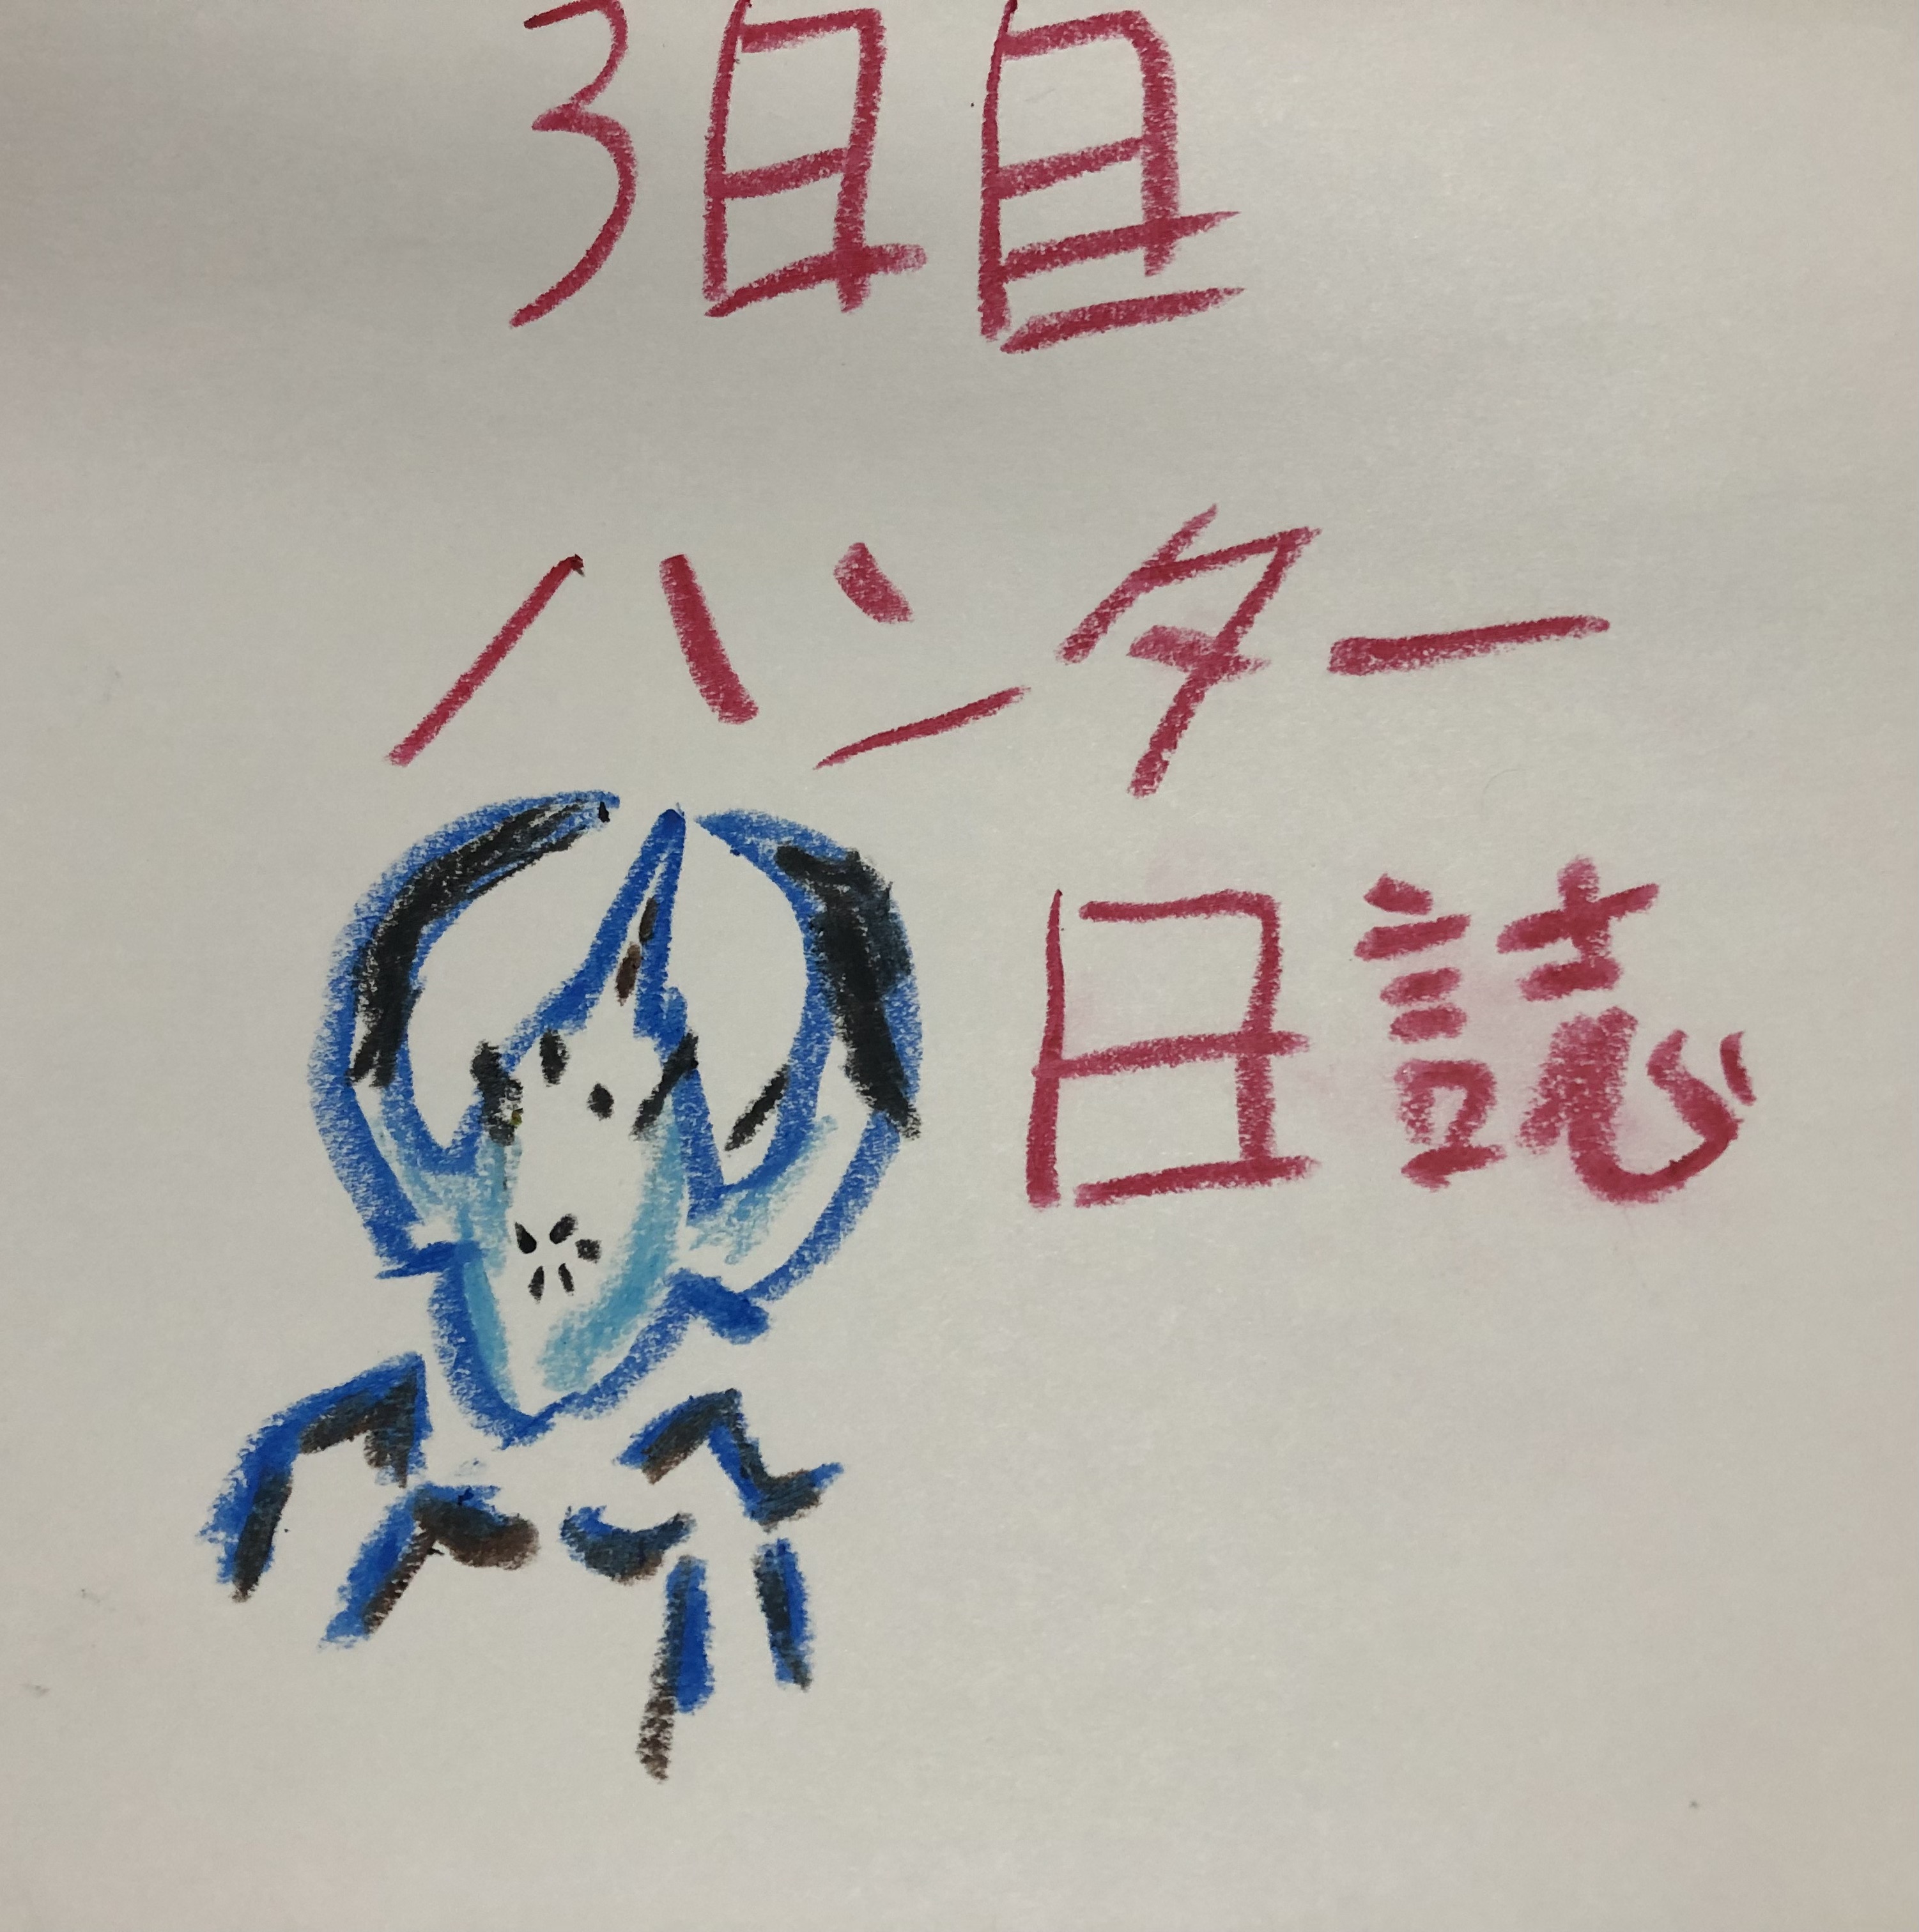 3日目
ハンター
日誌